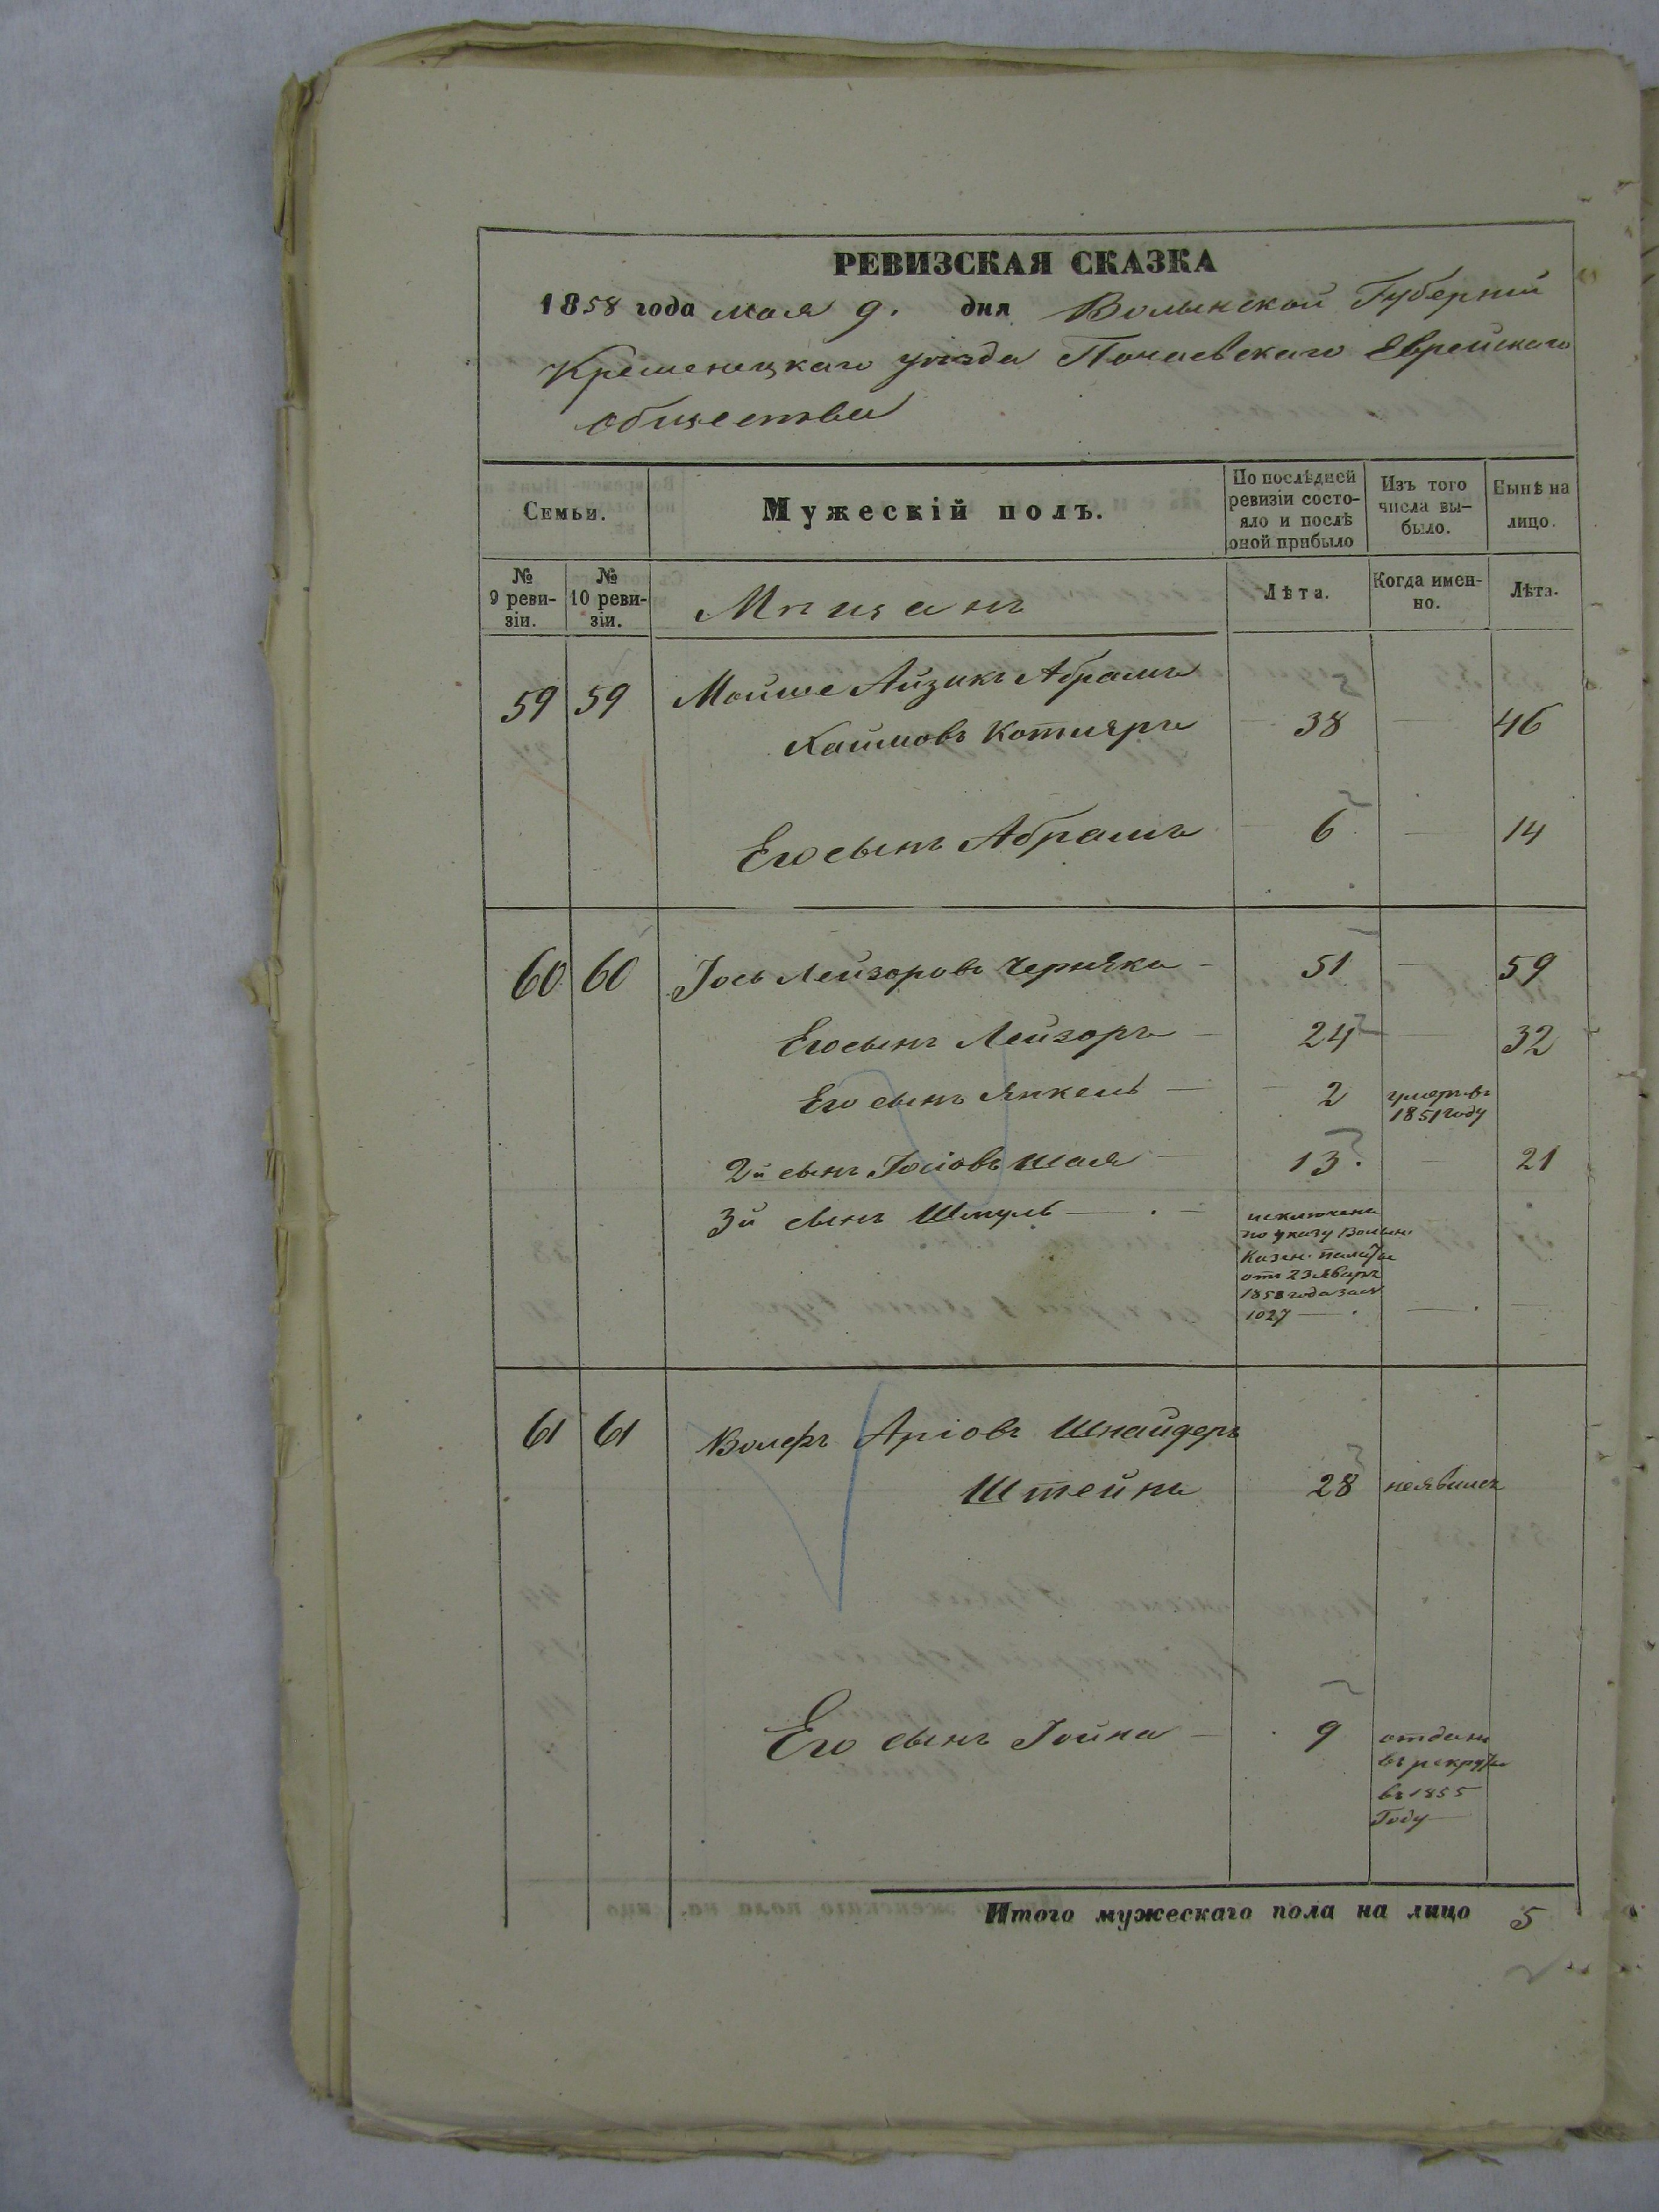 РЕВИЗСКАЯ СКАЗКА
1858 года мая 9. дня Волынской Губерніи
Кременецкаго уѣзда Почаевскаго Еврейскаго
общества
Семьи.
Мужескій полъ.
По послѣдней
ревизіи состо-
яло и послѣ
оной прибыло
Изъ того
числа вы-
было.
Нынѣ на
лицо.
№
9 реви-
зіи.
№
10 реви-
зіи.
Мѣщанъ
Лѣта.
Когда имен-
но.
Лѣта.
59 59 Мойше Айзикъ Абрамъ
Хаимовъ Котляръ 38 — 46
Его сынъ Абрамъ 6 — 14
60 60 Іось Лейзоровъ Черняка — 51 — 59
Его сынъ Лейзоръ — 24 — 32
Его сынъ Янкель — 2 умеръ въ
1851 году
2й сынъ Іосіовъ Шая — 13. — 21
3й сынъ Шмуль — . — исключенъ
по указу Волын.
Казен. палаты
отъ 23 января
1858 года за №
1027 — . — . —
61 61 Волфъ Аріовъ Шнайдеръ
Штейнъ 28 неявился
Его сынъ Іойна — 9 отданъ
въ рекруты
въ 1855
Году
Итого мужескаго пола на лицо 5